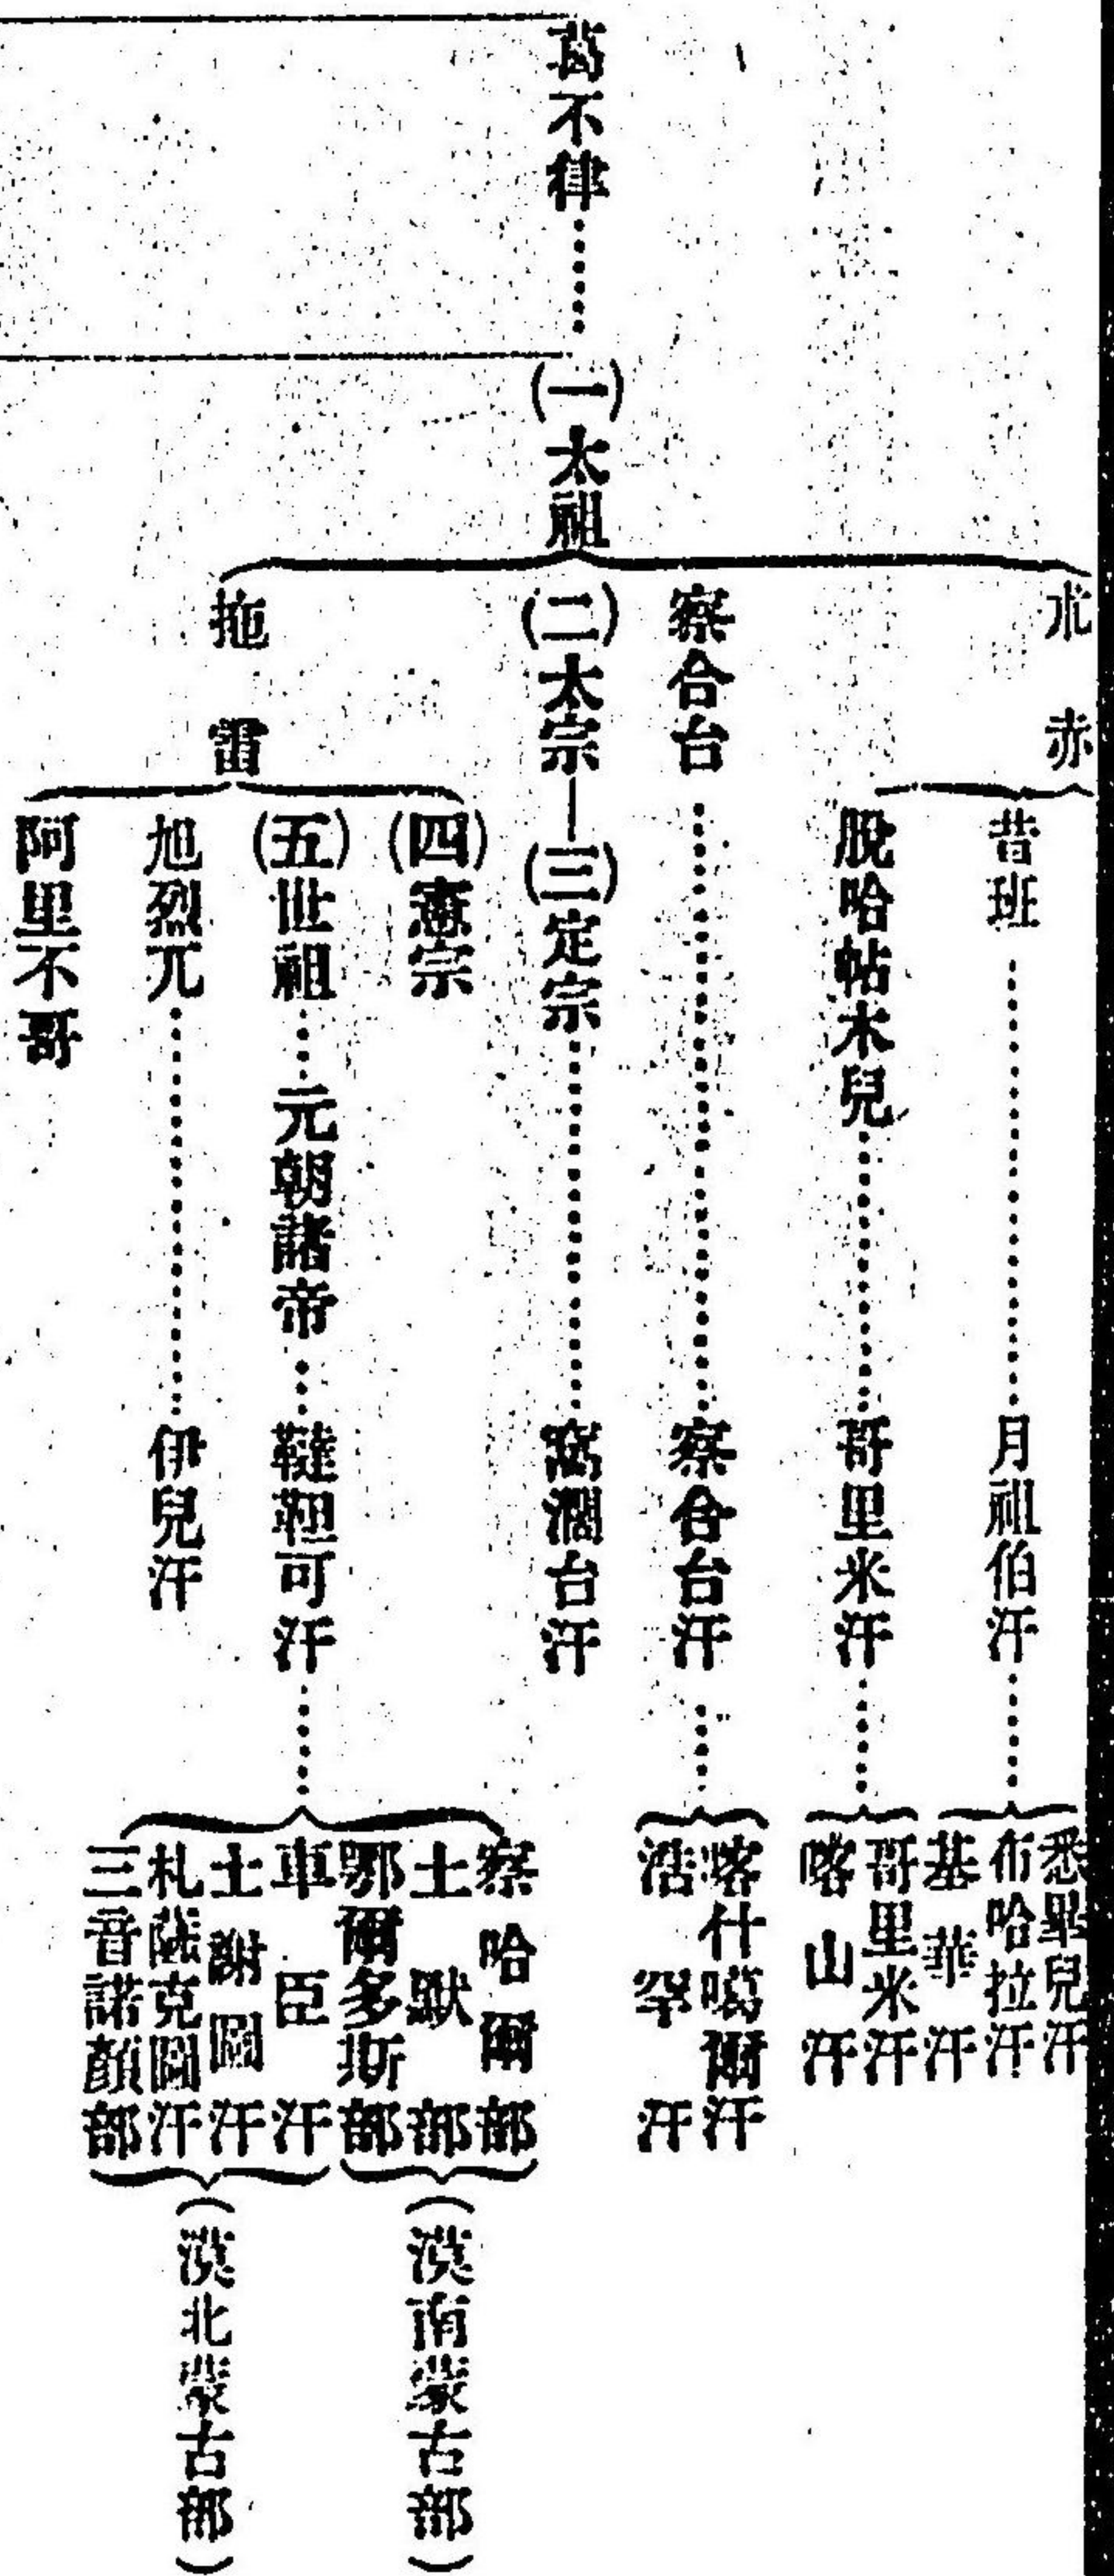 葛不律
(一)太祖
朮赤
昔班
月祖伯汗
悉畢兒汗
布哈拉汗
基華汗
脫哈帖木兒
哥里米汗
哥里米汗
喀山汗
察合台
察合台汗
喀什噶爾汗
浩罕汗
(二)太宗—(三)定宗
窩濶台汗
拖雷
(四)憲宗
(五)世祖
元朝諸帝
韃靼可汗
察哈爾部
土默部
鄂爾多斯部
(漠南蒙古部)
車臣汗
土謝圖汗
札薩克圖汗
三音諾顏部
(漠北蒙古部)
旭烈兀
伊兒汗
阿里不哥